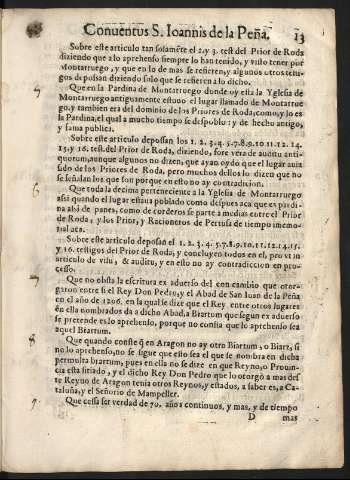 Conuentus S. Ioannis de la Peña. 13
Sobre este articulo tan solamẽte el 2. y 3. test. del Prior de Roda
diziendo que a lo aprehenso siempre lo han tenido, y visto tener por
Montarruego, y que en lo de mas se refieren, y algunos otros testi-
gos deposan diziendo solo que se refieren a lo dicho.
5 Que en la Pardina de Montarruego donde oy esta la Yglesia de
Montarruego antiguamente estuuo el lugar llamado de Montarrue
go, y tambien era del dominio de los Priores de Roda, como, y lo es
la Pardina, el qual a mucho tiempo se despoblo: y de hecho antigo,
y fama publica.
Sobre este articulo deposan los 1. 2. 3. 4. 5. 7. 8. 9. 10. 11. 12. 14.
15. y 16. test. del Prior de Roda, diziendo, fore vera de auditu anti-
quorum, aunque algunos no dizen, que ayan oydo que el lugar aura
sido de los Priores de Roda, pero muchos dellos lo dizen que no
se señalan los que son porque en esto no ay contradicion.
6 Que toda la decima perteneciente a la Yglesia de Montarruego
assi quando el lugar estaua poblado como despues aca que es pardi-
na assi de panes, como de corderos se parte a medias entre el Prior
de Roda, y los Prior, y Racioneros de Pertusa de tiempo immemo-
rial aca.
Sobre este articulo deposan el 1. 2. 3. 4. 5. 7. 8. 9. 10. 11. 12. 14. 15.
y 16. testigos del Prior de Roda, y concluyen todos en el, pro vt in
articulo de visu, & auditu, y en esto no ay contradiccion en pro-
cesso.
7 Que no obsta la escritura ex aduerso del con cambio que otor-
garon entre si el Rey Don Pedro, y el Abad de San Iuan de la Peña
en el año de 1206. en la qual se dize que el Rey entre otros lugares
en ella nombrados da a dicho Abad, a Biartum que segun ex aduerso
se pretende es lo aprehenso, porque no consta que lo aprehenso sea
aquel Biartum.
8 Que quando conste q̃ en Aragon no ay otro Biartum, o Biarz, si
no lo aprehenso, no se sigue que esto sea el que se nombra en dicha
permulta biartum, pues en ella no se dize en que Reyno, o Prouin-
cia esta sitiado, y el dicho Rey Don Pedro que lo otorgò a mas des
te Reyno de Aragon tenia otros Reynos, y estados, a saber es, a Ca-
taluña, y el Señorio de Mampeller.
9 Que cessa ser verdad de 70. años continuos, y mas, y de tiempo
D mas